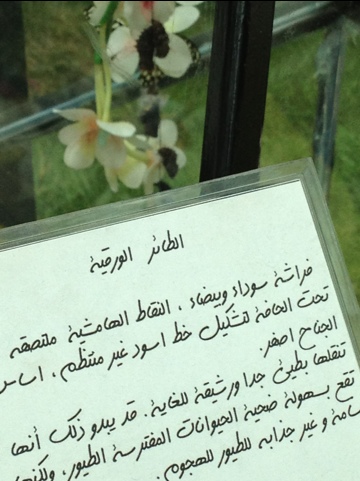 الطائر الورقية
فراشة سوداء وبيضاء ، النقاط الهامشية ملتصقة
تحت الحافة لتشكيل خط اسود غير منتظم ، اساس
الجناح اصفر.
تنقلها بطيئ جدا ورشيقة للغاية . قد يبدو ذلك أنها
تقع بسهولة ضحية الحيوانات المفترسة الطيور ، ولكنها
سامة و غير جذابه للطيور للهجوم .